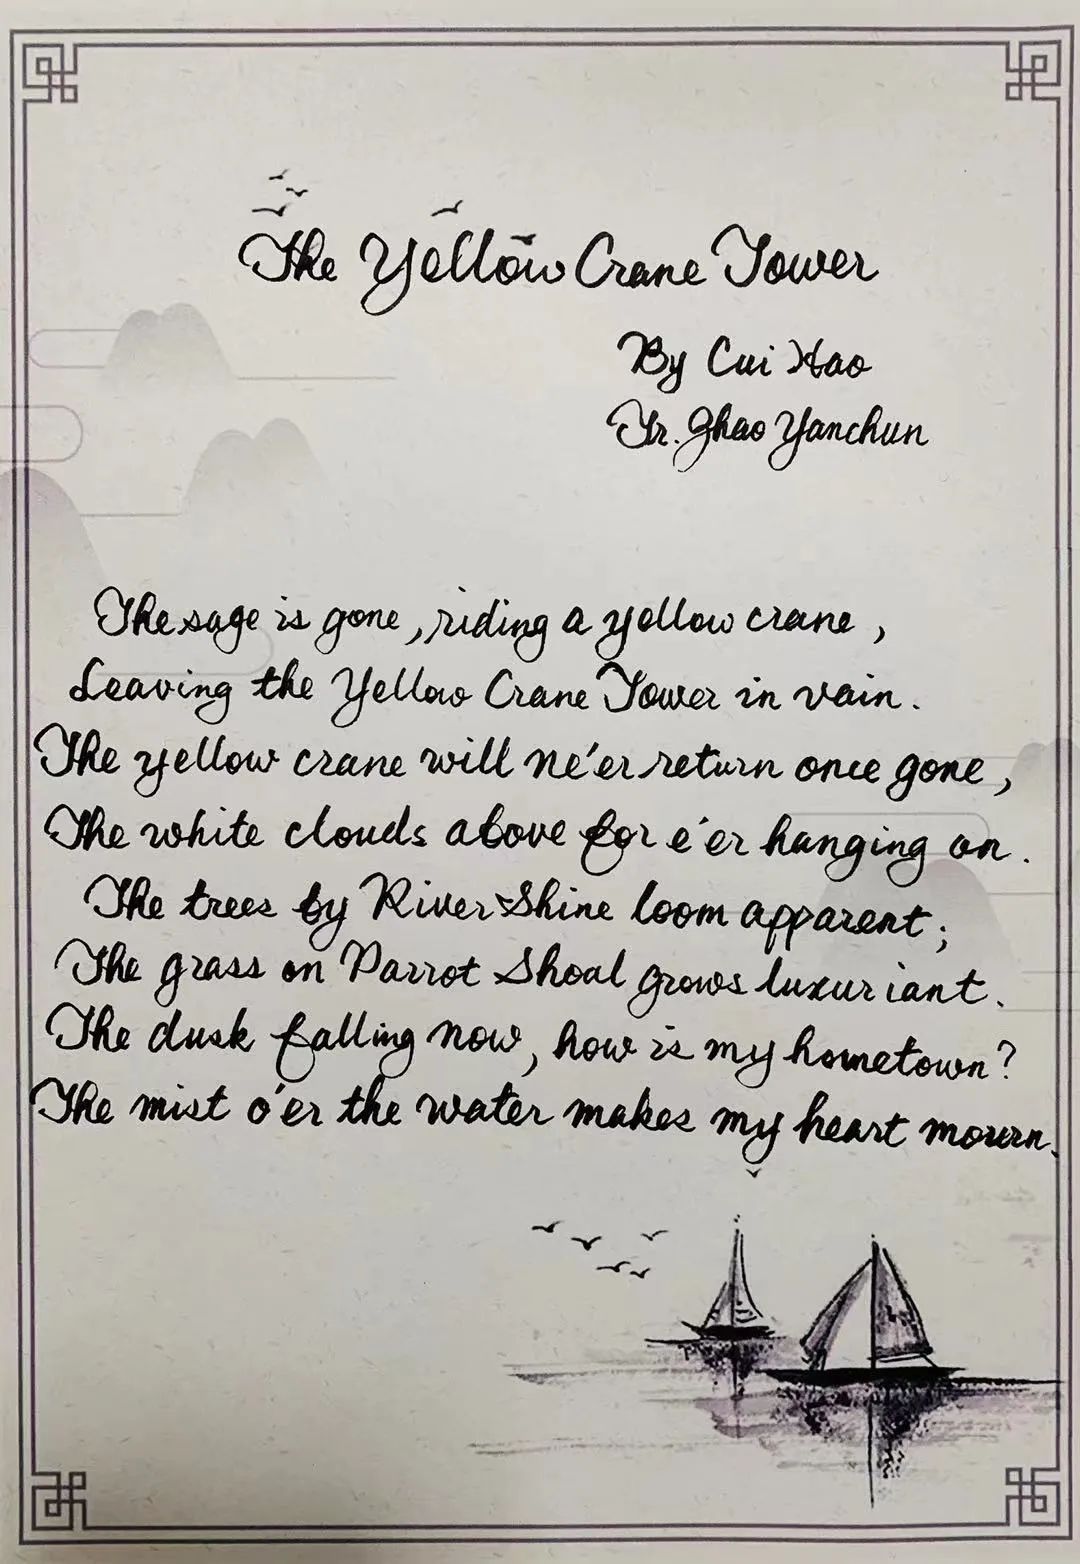 The Yellow Crane Tower
By Cui Hao
Tr. Zhao Yanchun
The sage is gone, riding a yellow crane,
Leaving the Yellow Crane Tower in vain.
The yellow crane will ne'er return once gone,
The white clouds above for e'er hanging on.
The trees by River Shine loom apparent;
The grass on Parrot Shoal grows luxuriant.
The dusk falling now, how is my hometown?
The mist o'er the water makes my heart mourn.